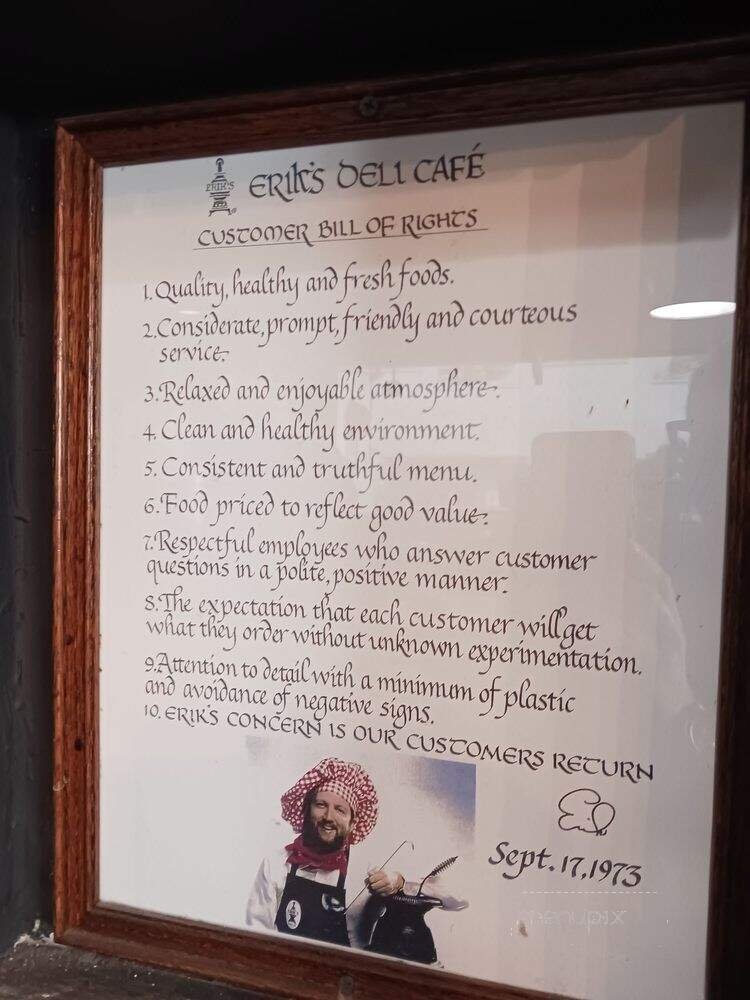 ERIK'S
ERIK'S DELI CAFÉ
CUSTOMER BILL OF RIGHTS
1. Quality, healthy and fresh foods.
2. Considerate, prompt, friendly and courteous
service.
3. Relaxed and enjoyable atmosphere.
4. Clean and healthy environment.
5. Consistent and truthful menu.
6. Food priced to reflect good value.
7. Respectful employees who answer customer
questions in a polite, positive manner.
8. The expectation that each customer will get
what they order without unknown experimentation.
9. Attention to detail with a minimum of plastic
and avoidance of negative signs.
10. ERIK'S CONCERN IS OUR CUSTOMERS RETURN
Sept. 17, 1973